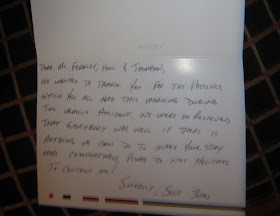 DEAR MR FERRELY, HUW & THOMPSON,
WE WANTED TO THANK YOU FOR THE PATIENCE
WHICH YOU ALL HAD THIS MORNING DURING
THE VEHICLE ACCIDENT, WE WERE SO RELIEVED
THAT EVERYBODY WAS WELL. IF THERE IS
ANYTHING WE CAN DO TO MAKE YOUR STAY
MORE COMFORTABLE, PLEASE DO NOT HESITATE
TO CONTACT ME!
SINCERELY,